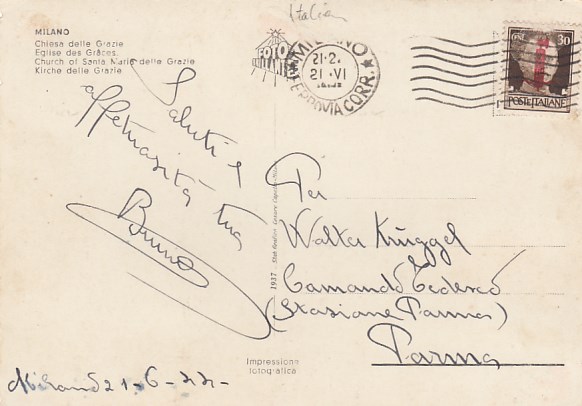 Italien
MILANO
Chiesa delle Grazie
Eglise des Grâces
Church of Santa Maria delle Grazie
Kirche delle Grazie
MILANO
21-2.
21 .VI
FERROVIA CORR.
30
POSTE ITALIANE
Saluti e
affettuosità tua
Bruno
Per
Walter Krüggel
Comando Tedesco
(Stazione Parma)
Parma
1937
Impressione
fotografica
Milano 21-6-44-